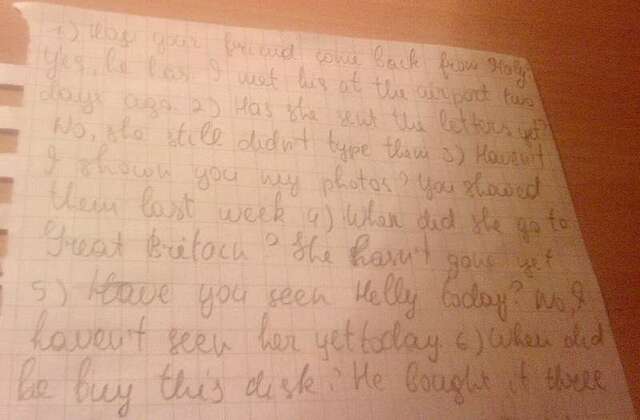 1) Has your friend come back from Italy?
Yes, he has. I met his at the airport two
days ago. 2) Has she sent the letters yet?
No, she still didn't type them 3) Haven't
I shown you my photos? You showed
them last week 4) When did she go to
Great Britain? She hasn't gone yet
5) Have you seen Helly today? No, I
haven't seen her yet today 6) When did
he buy this disk? He bought it three